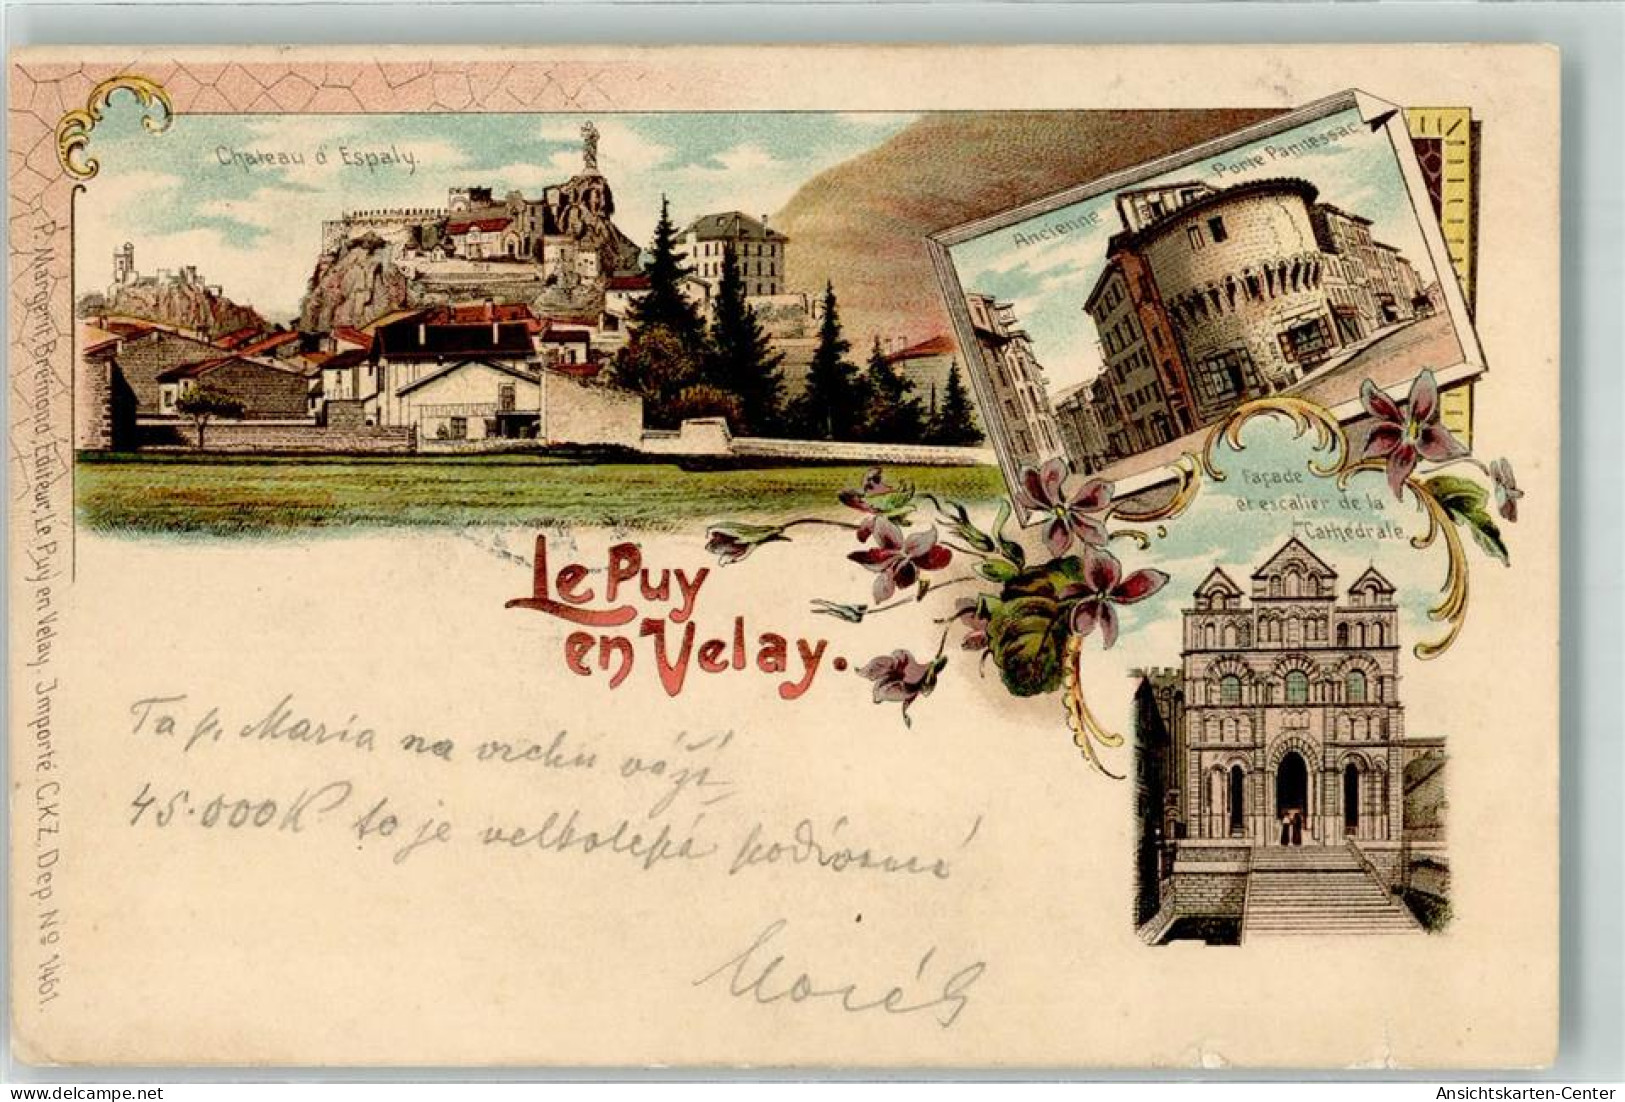 Chateau d'Espaly.
Ancienne Porte Pannessac
Façade
et escalier de la
Cathédrale.
Le Puy
en Velay.
Ta p. Maria na vrchu váží
45.000 K to je velkolepá podívaná
P. Margerit Brémond, Editeur, Le Puy en Velay. Importé C.K.Z. Dep. Nº 1461.
delcampe.net
Ansichtskarten-Center